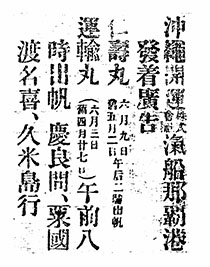 沖繩海運株式會社汽船那覇港
發着廣告
壽丸 六月九日午后二時出帆
運輸丸 六月三日(舊四月廿七日)午前八
時出帆 慶良間、粟國
渡名喜、久米島行